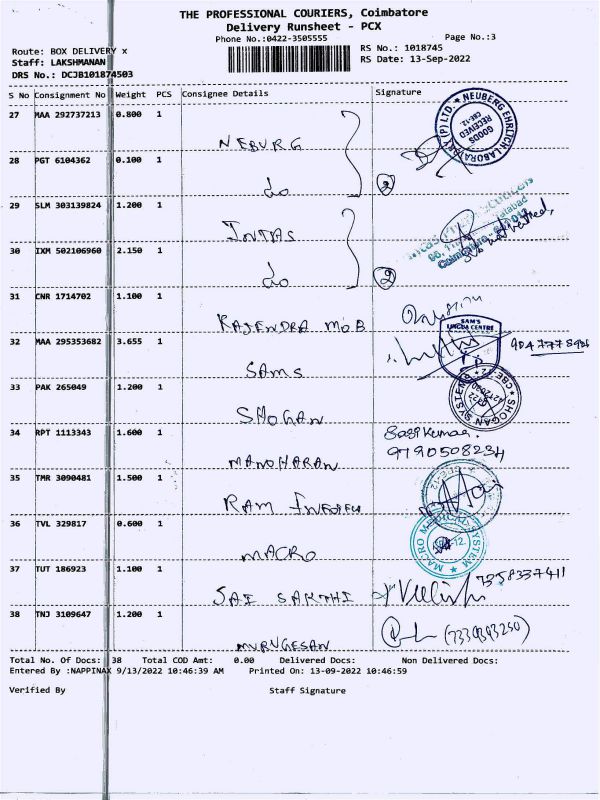 THE PROFESSIONAL COURIERS, Coimbatore
Delivery Runsheet - PCX
Phone No.:0422-3505555 Page No.:3
Route: BOX DELIVERY x RS No.: 1018745
Staff: LAKSHMANAN RS Date: 13-Sep-2022
DRS No.: DCJB101874503
S No Consignment No Weight PCS Consignee Details Signature
27 MAA 292737213 0.800 1 NEBURG
NEUBERG EHRLICH LABORATORY (P) LTD.
GOODS RECEIVED CBE-12.
28 PGT 6104362 0.100 1 do 2
29 SLM 303139824 1.200 1 INTAS
30 IXM 502106960 2.150 1 do 2
31 CNR 1714702 1.100 1 RAJENDRA MOB
32 MAA 295353682 3.655 1 SAMS
SAM'S LINGUA CENTRE
33 PAK 265049 1.200 1 SHOGAN
SHOGAN SYSTEMS
34 RPT 1113343 1.600 1 MANOHARAN Sasikumar.
9790508234
35 TMR 3090481 1.500 1 RAM
36 TVL 329817 0.600 1 MACRO
MACRO MEDICAL SYSTEM
37 TUT 186923 1.100 1 SAI SAKTHI 7358337411
38 TNJ 3109647 1.200 1 MURUGESAN (7339393250)
Total No. Of Docs: 38 Total COD Amt: 0.00 Delivered Docs: Non Delivered Docs:
Entered By :NAPPINAX 9/13/2022 10:46:39 AM Printed On: 13-09-2022 10:46:59
Verified By Staff Signature